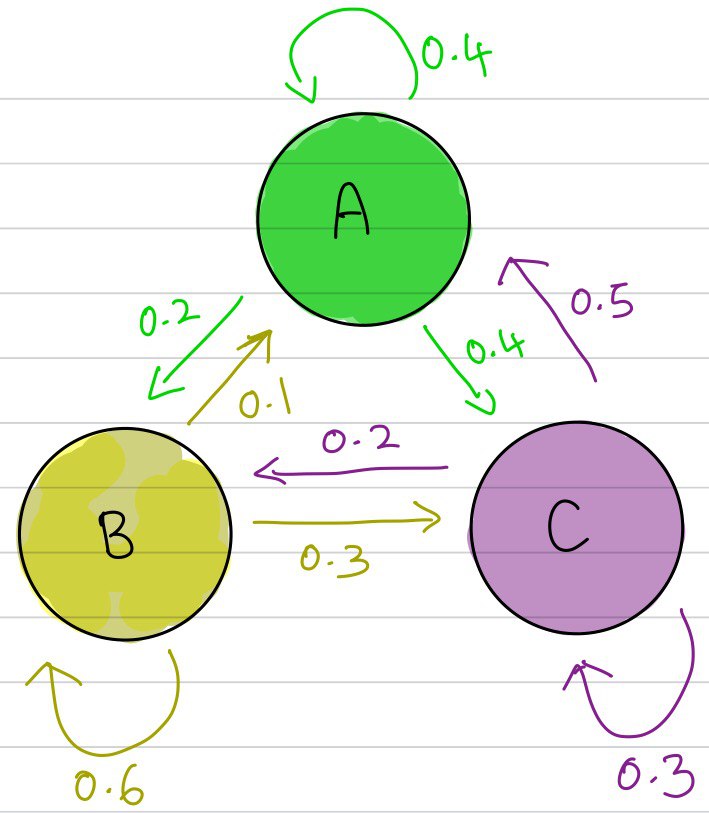 0.4
A
0.2
0.1
0.4
0.5
0.2
B
0.3
C
0.6
0.3